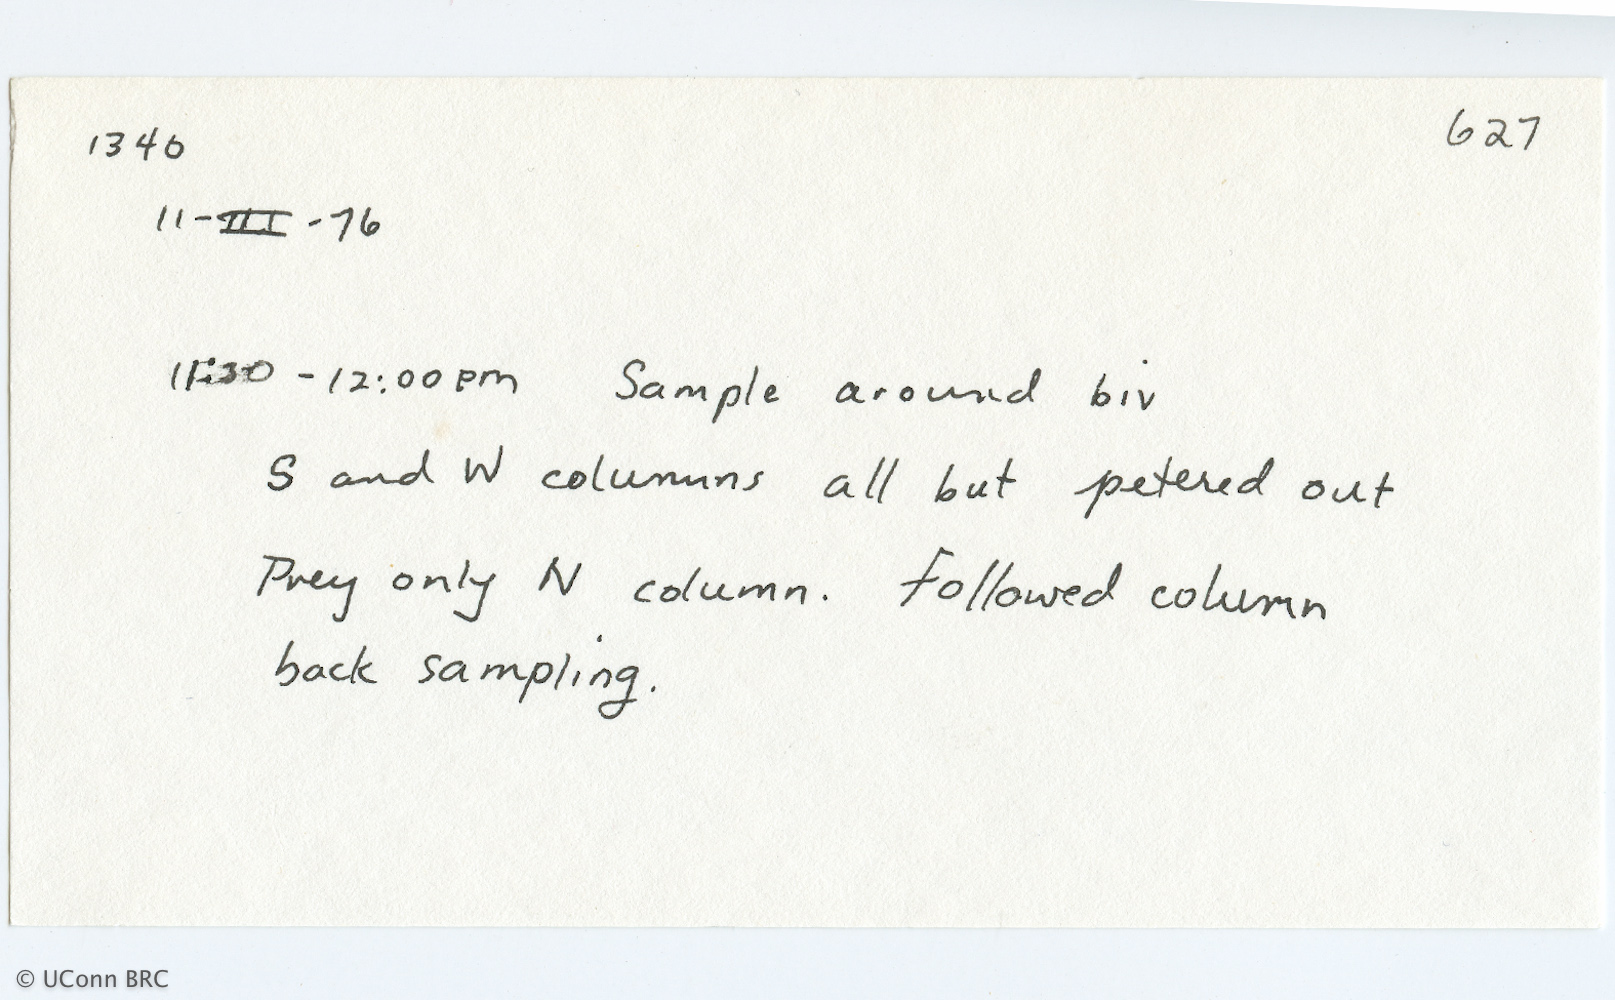 1340
627
11-III-76
11:30-12:00pm Sample around biv
S and W columns all but petered out
Prey only N column. Followed column
back sampling.
© UConn BRC